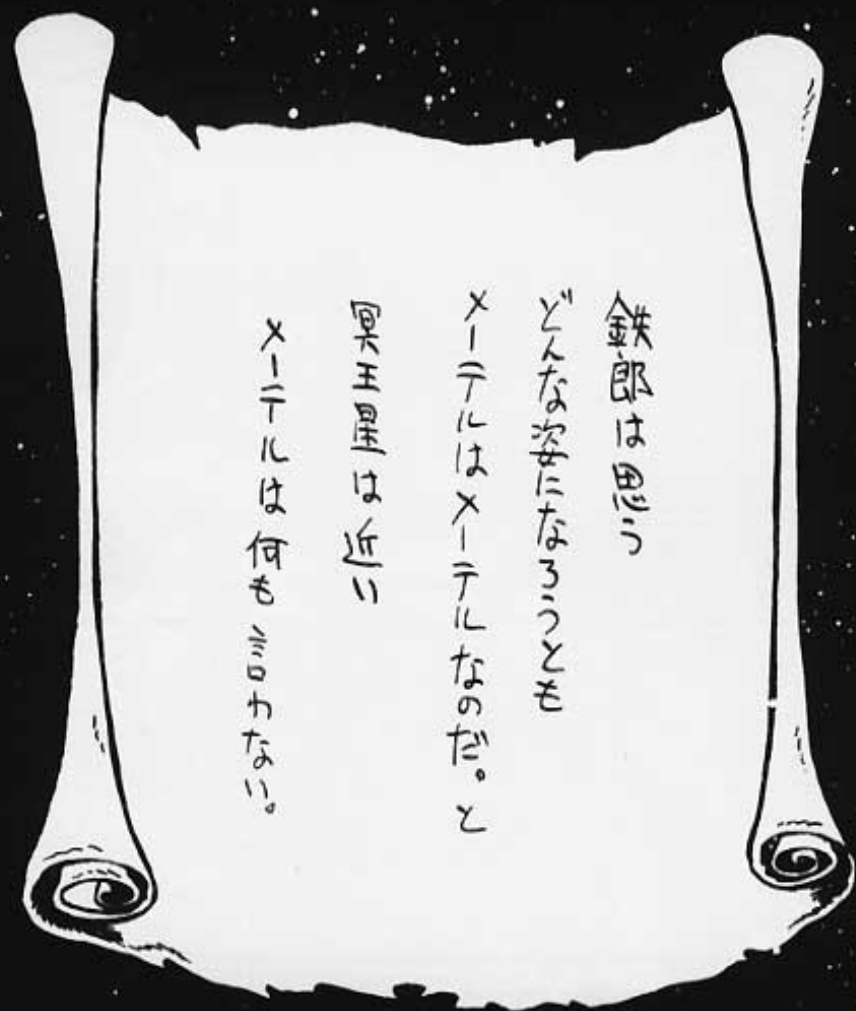 鉄郎は思う
どんな姿になろうとも
メーテルはメーテルなのだ。と
冥王星は近い
メーテルは何も言わない。